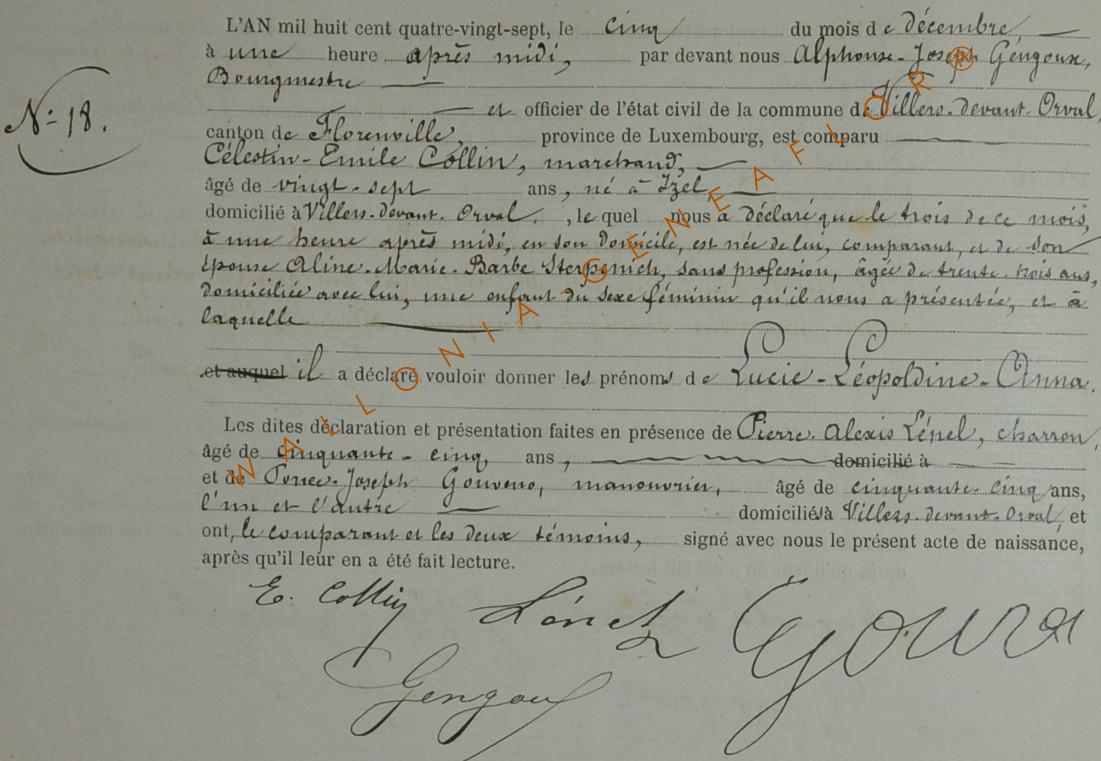 L'AN mil huit cent quatre-vingt-sept, le cinq du mois de décembre,
à une heure après midi, par devant nous Alphonse-Joseph Gengoux,
Bourgmestre
N° 18.
et officier de l'état civil de la commune de Villers-devant-Orval,
canton de Florenville, province de Luxembourg, est comparu
Célestin-Emile Collin, marchand,
âgé de vingt-sept ans, né à Izel
domicilié à Villers-devant-Orval, le quel nous a déclaré que le trois de ce mois,
à une heure après midi, en son domicile, est née de lui, comparant, et de son
épouse Aline-Marie-Barbe Sterpenich, sans profession, âgée de trente-trois ans,
domiciliée avec lui, une enfant du sexe féminin qu'il nous a présentée, et à
laquelle
et auquel il a déclaré vouloir donner les prénoms de Lucie-Léopoldine-Anna.
Les dites déclaration et présentation faites en présence de Pierre-Alexis charron,
âgé de cinquante-cinq ans, domicilié à
et de Joseph manouvrier, âgé de cinquante-cinq ans,
l'un et l'autre domiciliés à Villers-devant-Orval, et
ont, le comparant et les deux témoins, signé avec nous le présent acte de naissance,
après qu'il leur en a été fait lecture.
E. Collin
Gengoux
WALLONIA-GENEAFLOR®